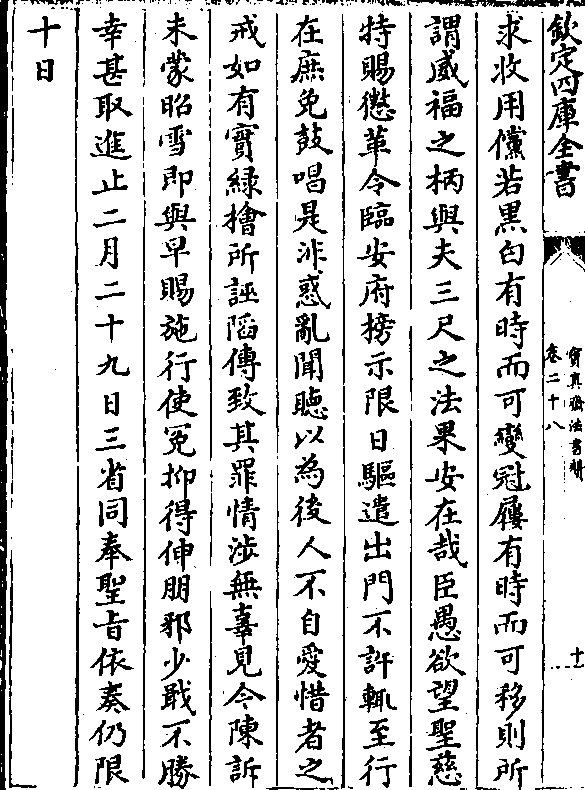 欽定四庫全書
寳真齋法書贊
卷二十八
十一
求收用儻若黒白有時而可變冠屨有時而可移則所
謂威福之柄與夫三尺之法果安在哉臣愚欲望聖慈
特賜懲革令臨安府榜示限日驅遣出門不許輒至行
在庶免鼓唱是非惑亂聞聽以為後人不自愛惜者之
戒如有實緣檜所誣䧟傅致其罪情涉無辜見今陳訴
未蒙昭雪即與早賜施行使冤抑得伸朋邪少戢不勝
幸甚取進止二月二十九日三省同奉聖旨依奏仍限
十日